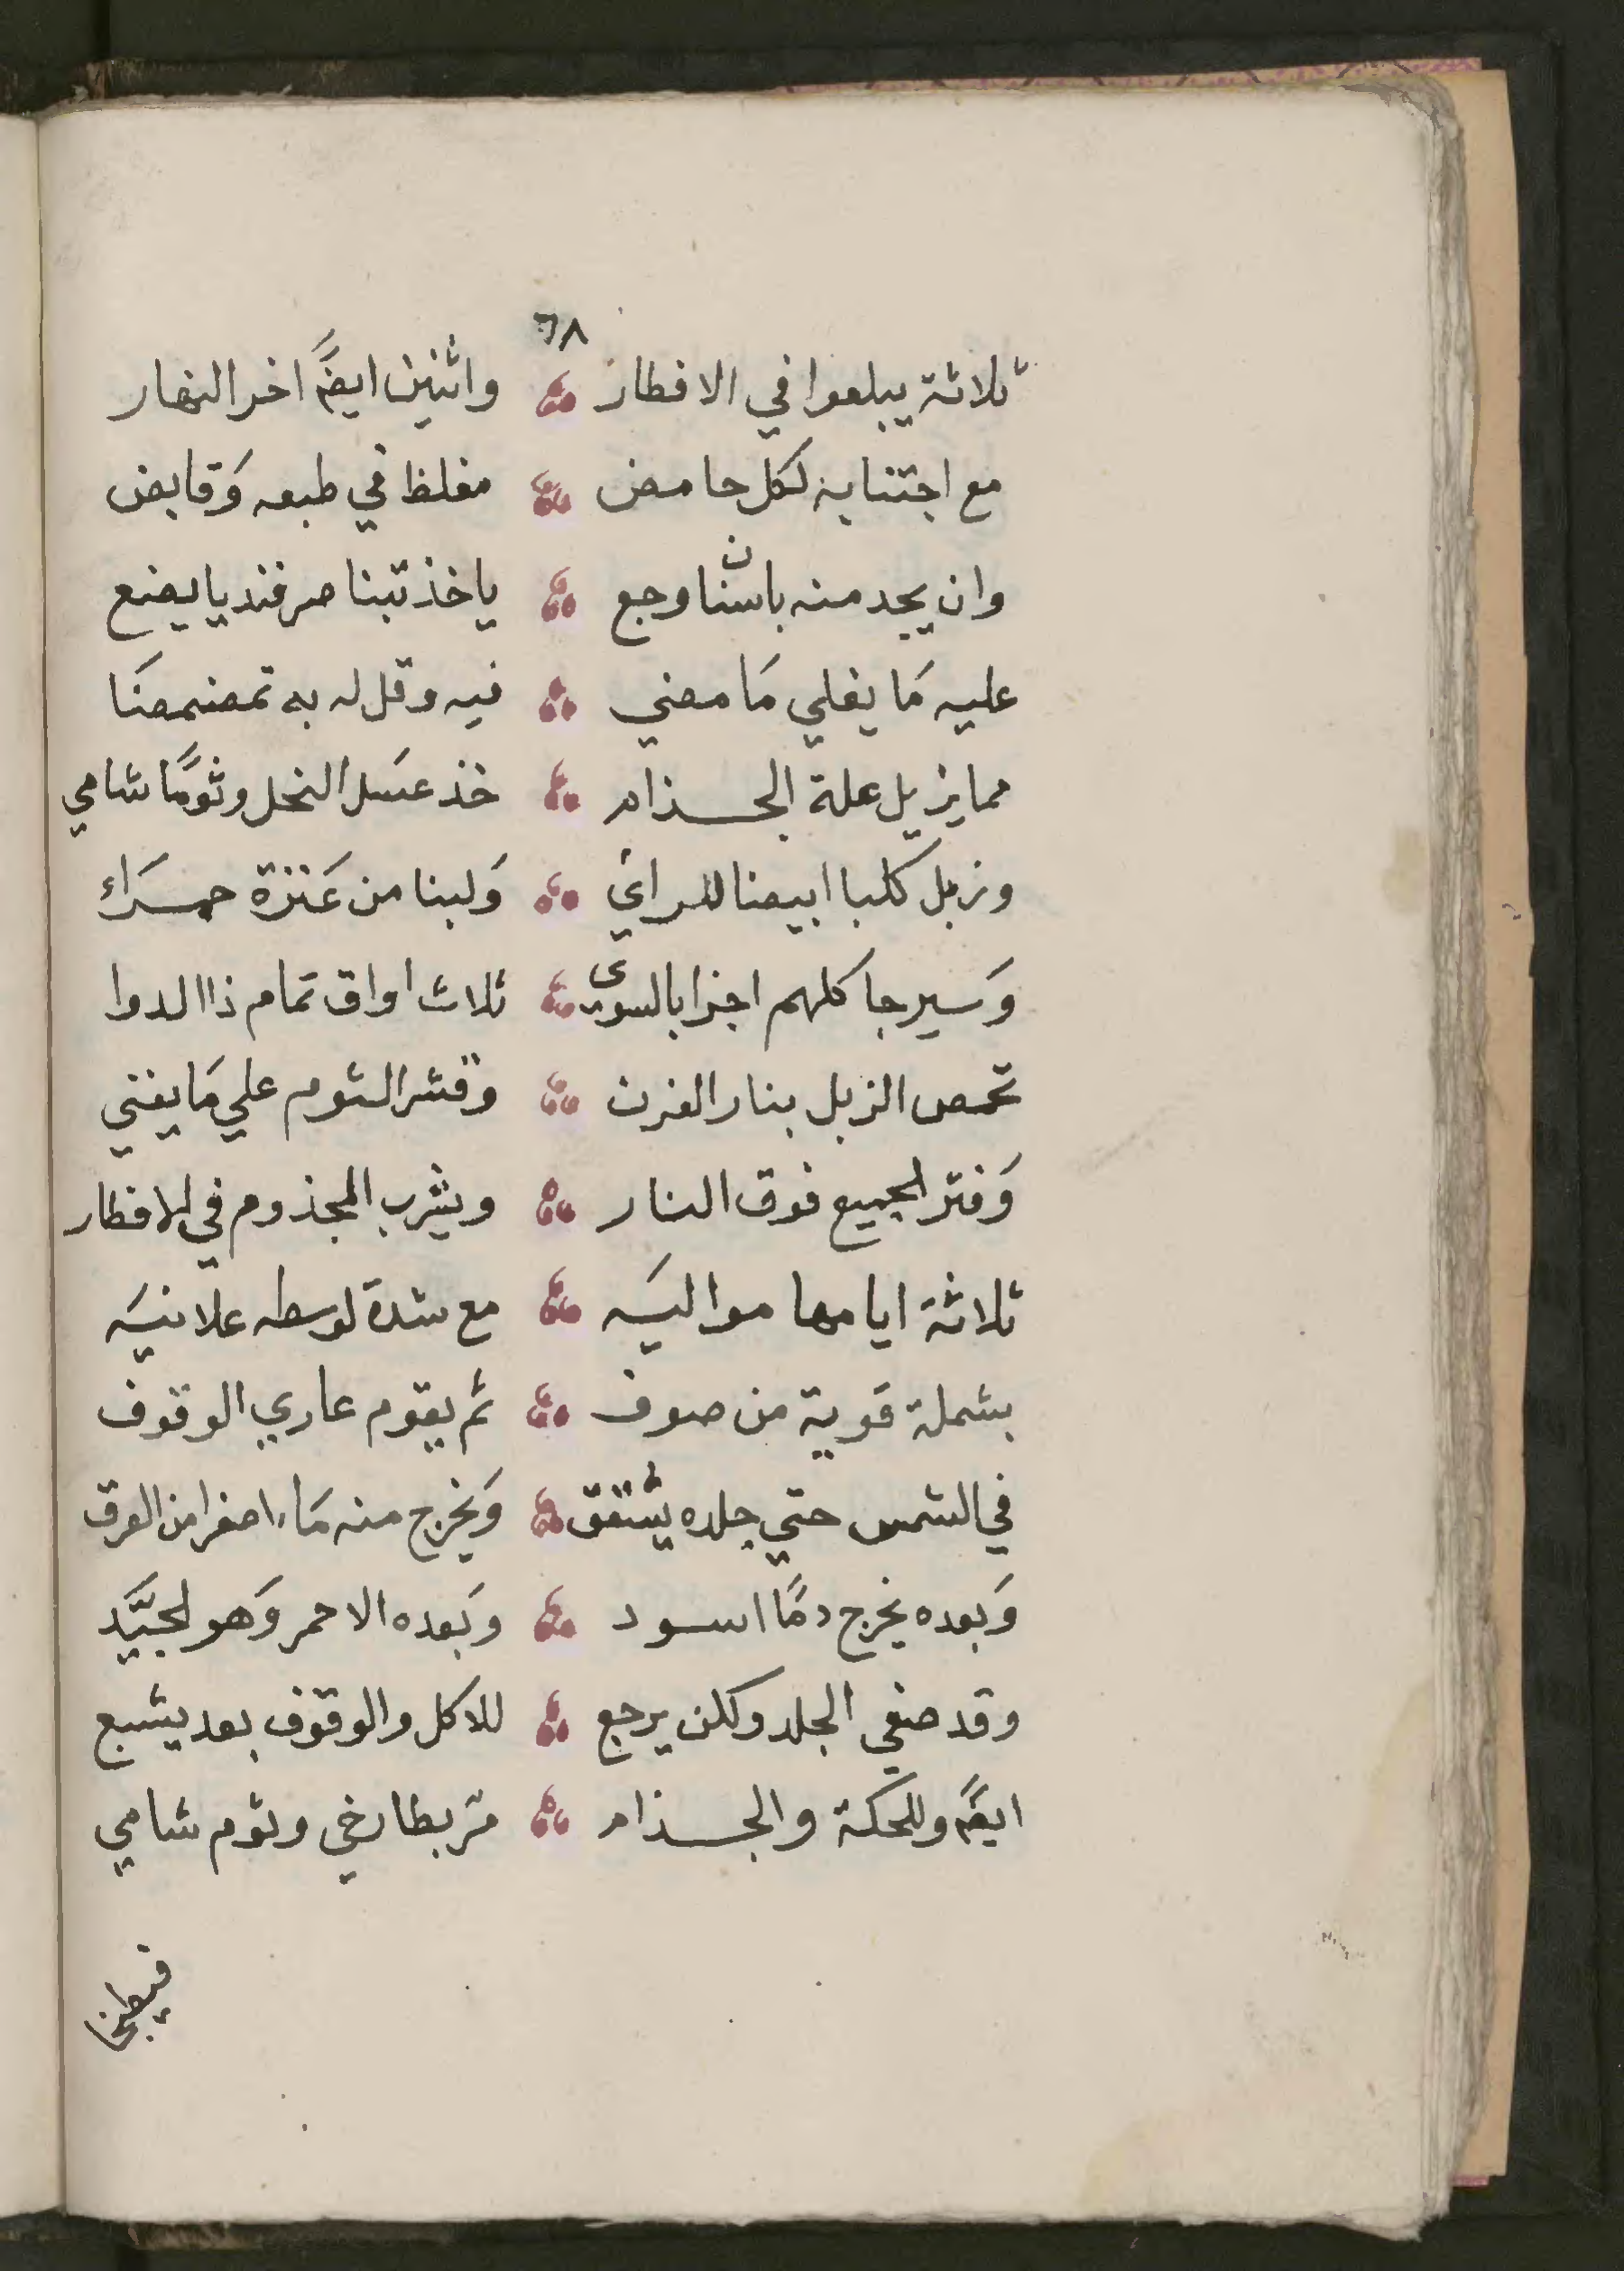 ٦٨
ثلاثة يبلعوا في الافطار واثنين ايضًا اخر النهار
مع اجتنابه لكل حامض مغلظ في طبعه وَقابض
وان يجد منه باسنان وجع ياخذ تبنا صرفنديا يضع
عليه مَا يغلي مَا مضي فيه وقل له به تمضمضَا
مما يزيل علة الجذام خذ عسَل النحل وثومًا شامي
وزبل كلبا ابيضا للراي وَلبنا من عَنزة حمرَاء
وَسيرجا كلهم اجزا بالسوى ثلاث اواق تمام ذا الدوا
تحمص الزبل بنار الفرن وقشر الثوم علي مَا يفني
وَفتر الجميع فوق النار ويشرب المجذوم في الافطار
ثلاثة ايامها مواليَه مع شدة لوسطه علانيَه
بشملة قوية من صوف ثم يقوم عاري الوقوف
في الشمس حتي جلده يشقق وَيخرج منه مَاء اصفرا من العرق
وَبعده يخرج دمًا اسود وبَعده الاحمر وَهو الجيَّد
وقد صفي الجلد ولكن يرجع للاكل والوقوف بعد يشبع
ايضًا وللحكة والجذام تربطارخي وثوم شامي
فيطبخا